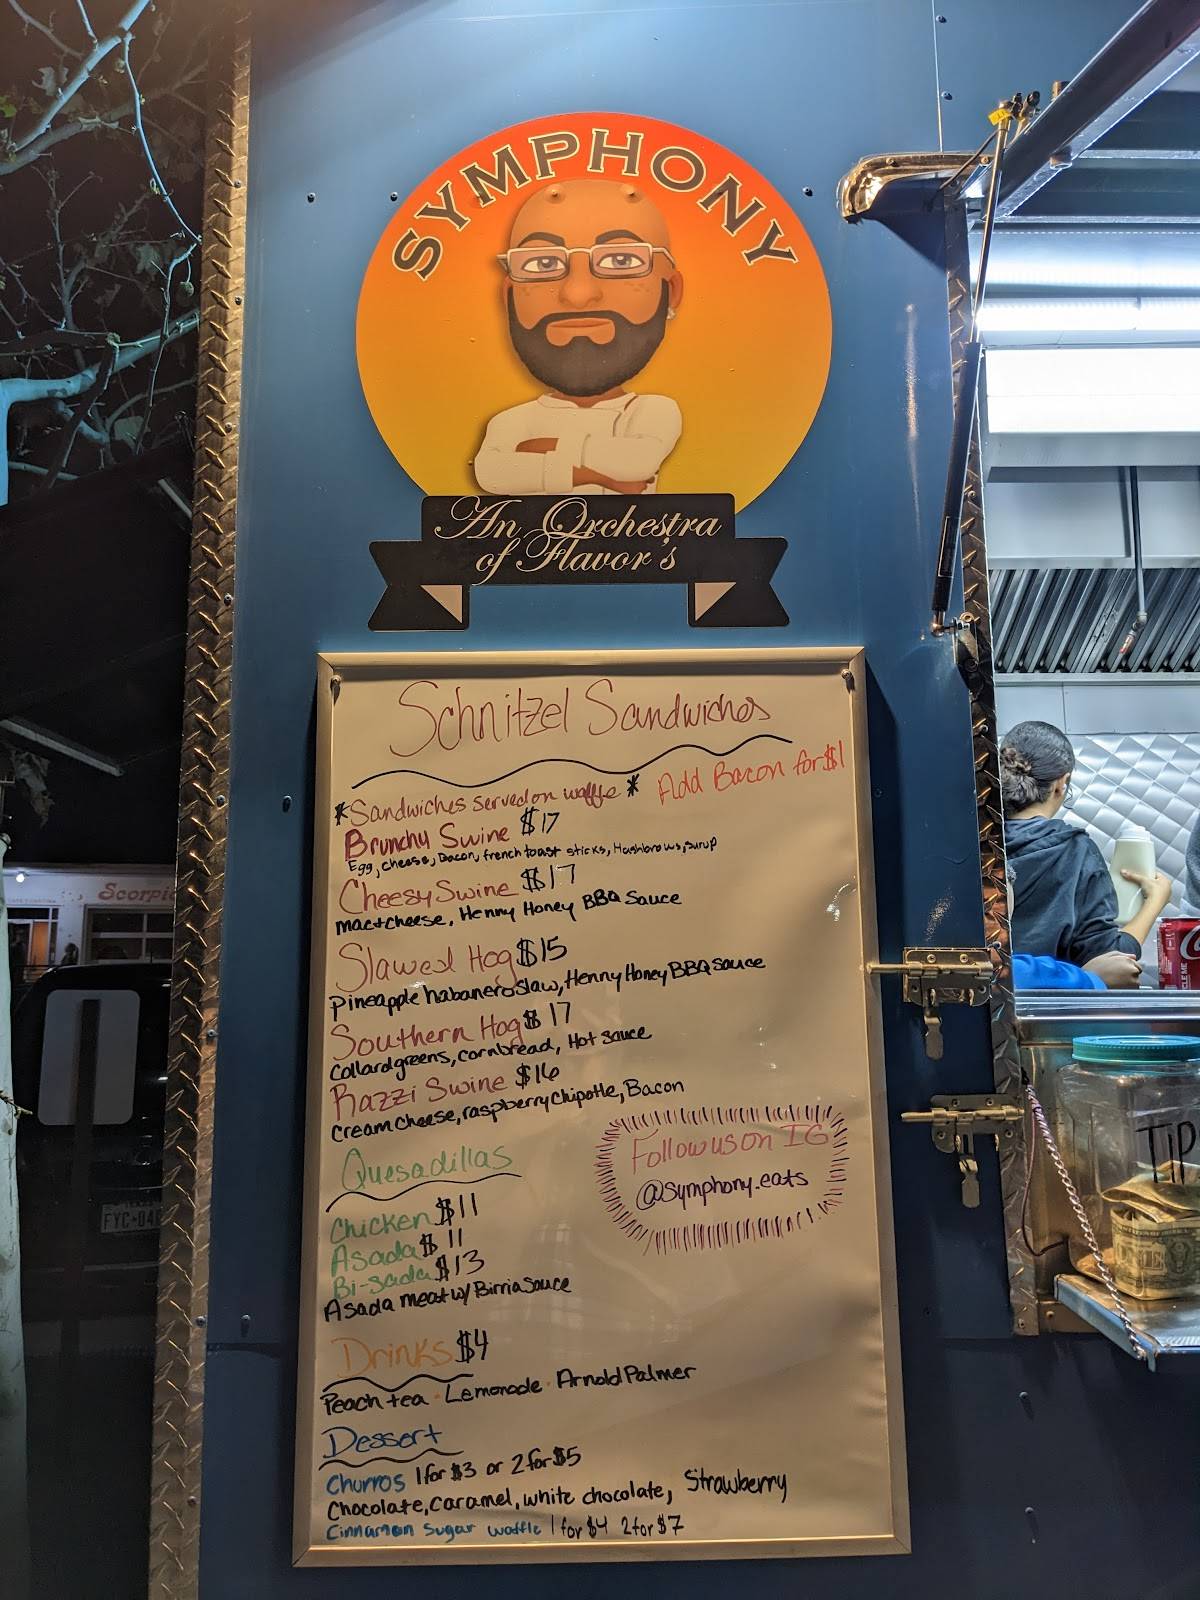 SYMPHONY
An Orchestra
of Flavor's
Schnitzel Sandwiches
*Sandwiches served on waffle* Add Bacon for $1
Brunchy Swine $17
Egg, cheese, Bacon, french toast sticks, Hashbrowns, surup
Cheesy Swine $17
mac+cheese, Henny Honey BBQ Sauce
Slawed Hog $15
pineapple habanero slaw, Henny Honey BBQ sauce
Southern Hog $17
collard greens, cornbread, Hot sauce
Razzi Swine $16
cream cheese, raspberry chipotle, Bacon
Quesadillas
Follow us on IG
@symphony.eats
Chicken $11
Asada $11
Bi-sada $13
Asada meat w/ Birria sauce
Drinks $4
Peach tea · Lemonade · Arnold Palmer
Dessert
Churros 1 for $3 or 2 for $5
Chocolate, caramel, white chocolate, Strawberry
Cinnamon sugar waffle 1 for $4 2 for $7
Scorpio
TIP
ONE